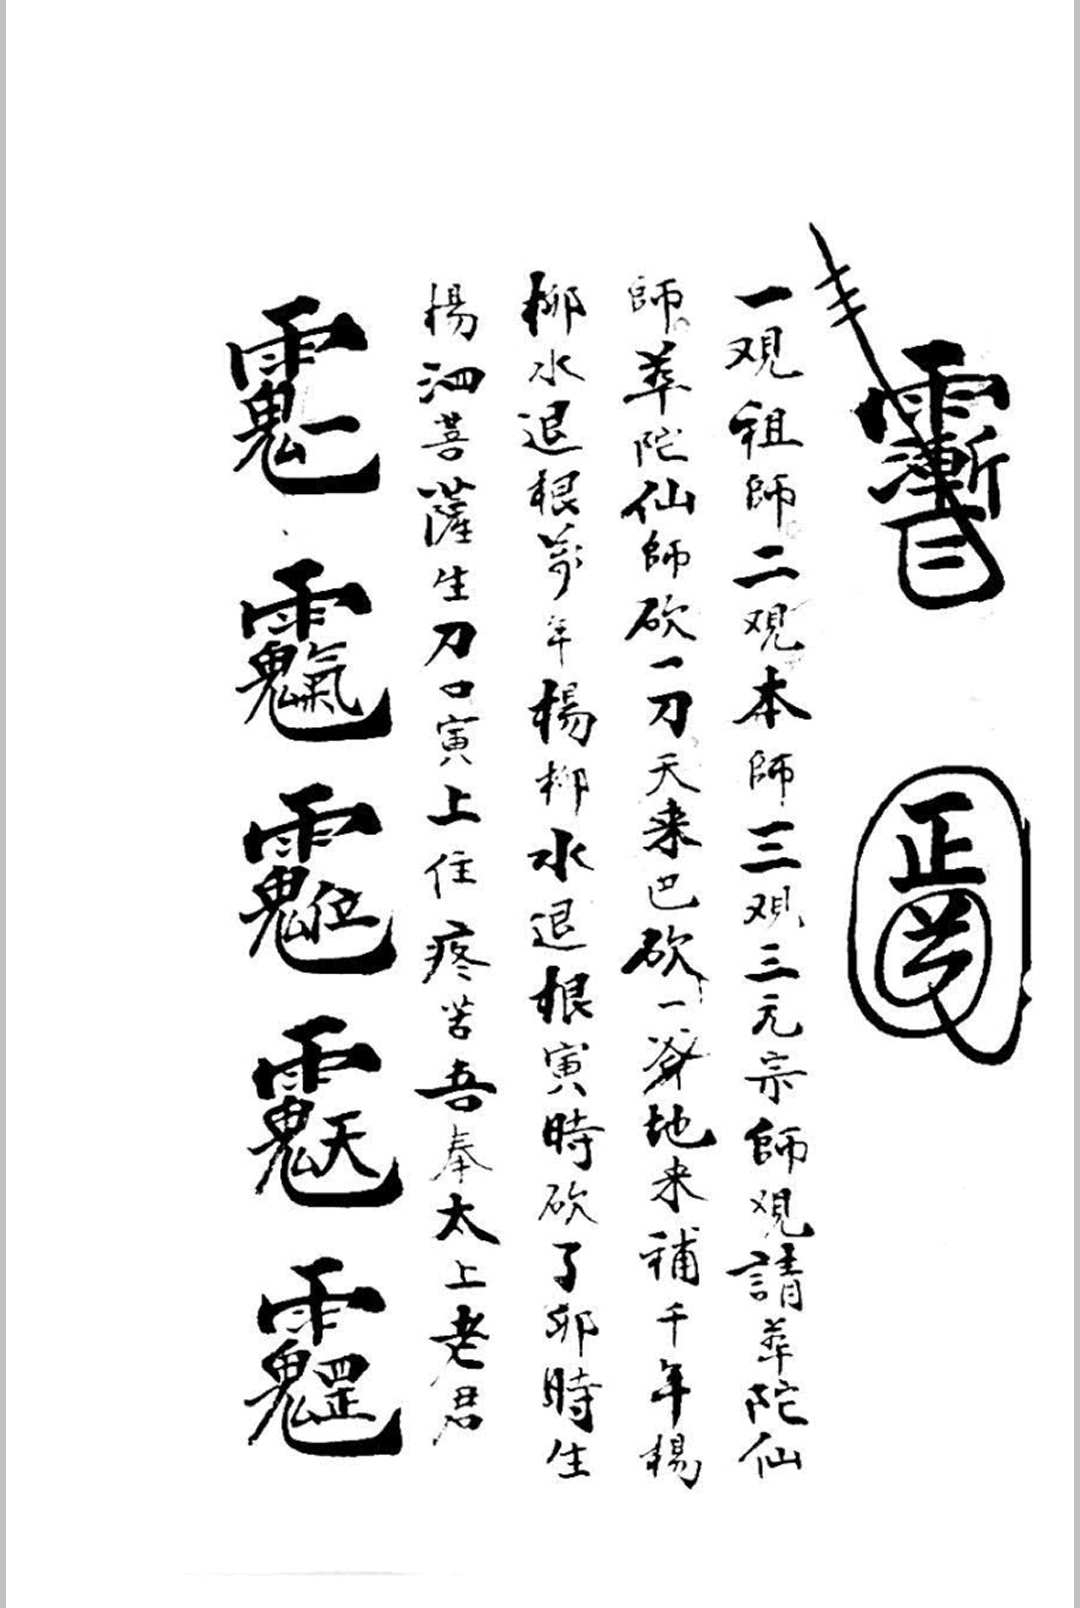 正
一观祖師二观本師三观三元宗師观請華陀仙
師華陀仙師砍一刀天来巴砍一斧地来補千年楊
柳水退根萬年楊柳水退根寅時砍了卯時生
楊泗菩薩生刀口寅上住疼苦吾奉太上老君